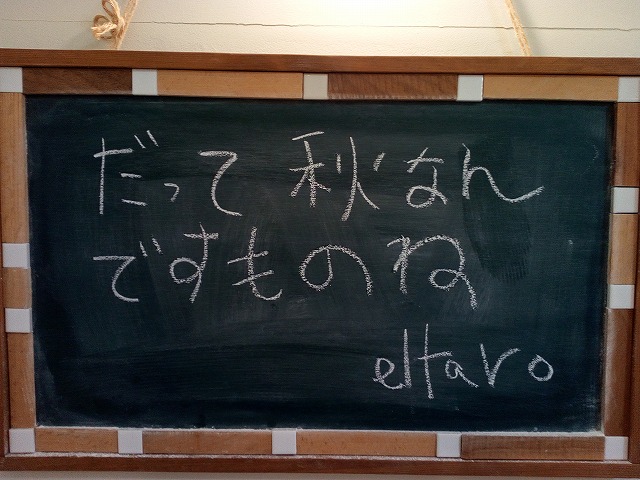 だって秋なん
ですものね
eltaro